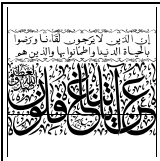 إن الذين لا يرجون لقاءنا ورضوا
بالحياة الدنيا واطمأنوا بها والذين هم
عن آياتنا غافلون